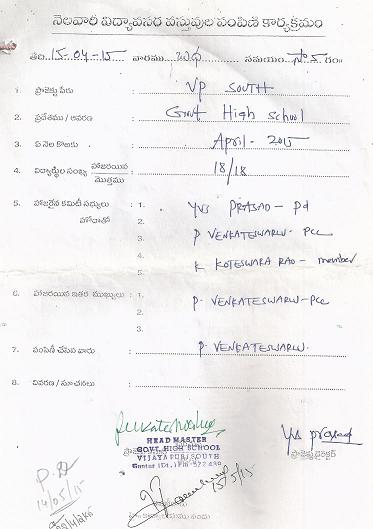 నెలవారీ విద్యావసర వస్తువుల పంపిణి కార్యక్రమం
తేది. 15-04-15 వారము బుధ సమయం సా.5. గం॥
1. ప్రాజెక్టు పేరు : VP SOUTH
2. ప్రదేశము / ఆవరణ : Govt High School
3. ఏ నెల కొఱకు : April - 2015
4. విద్యార్థుల సంఖ్య హాజరయిన / మొత్తము : 18/18
5. హాజరైన కమిటీ సభ్యులు : 1. YVS PRASAD - Pd
హోదాతో 2.
3. P VENKATESWARLU - PCC
4.
5. K KOTESWARA RAO - member
6. హాజరయిన ఇతర ముఖ్యులు : 1.
2. P. VENKATESWARLU - PCC
3.
7. పంపిణీ చేసిన వారు : P. VENKATESWARLU.
8. వివరణ / సూచనలు :
HEAD MASTER
GOVT. HIGH SCHOOL
VIJAYA PURI SOUTH
Guntur (Dt.) Pin - 522 439
yvs prasad
ప్రాజెక్టుడైరెక్టర్
P.D
14/05/15
15/5/15